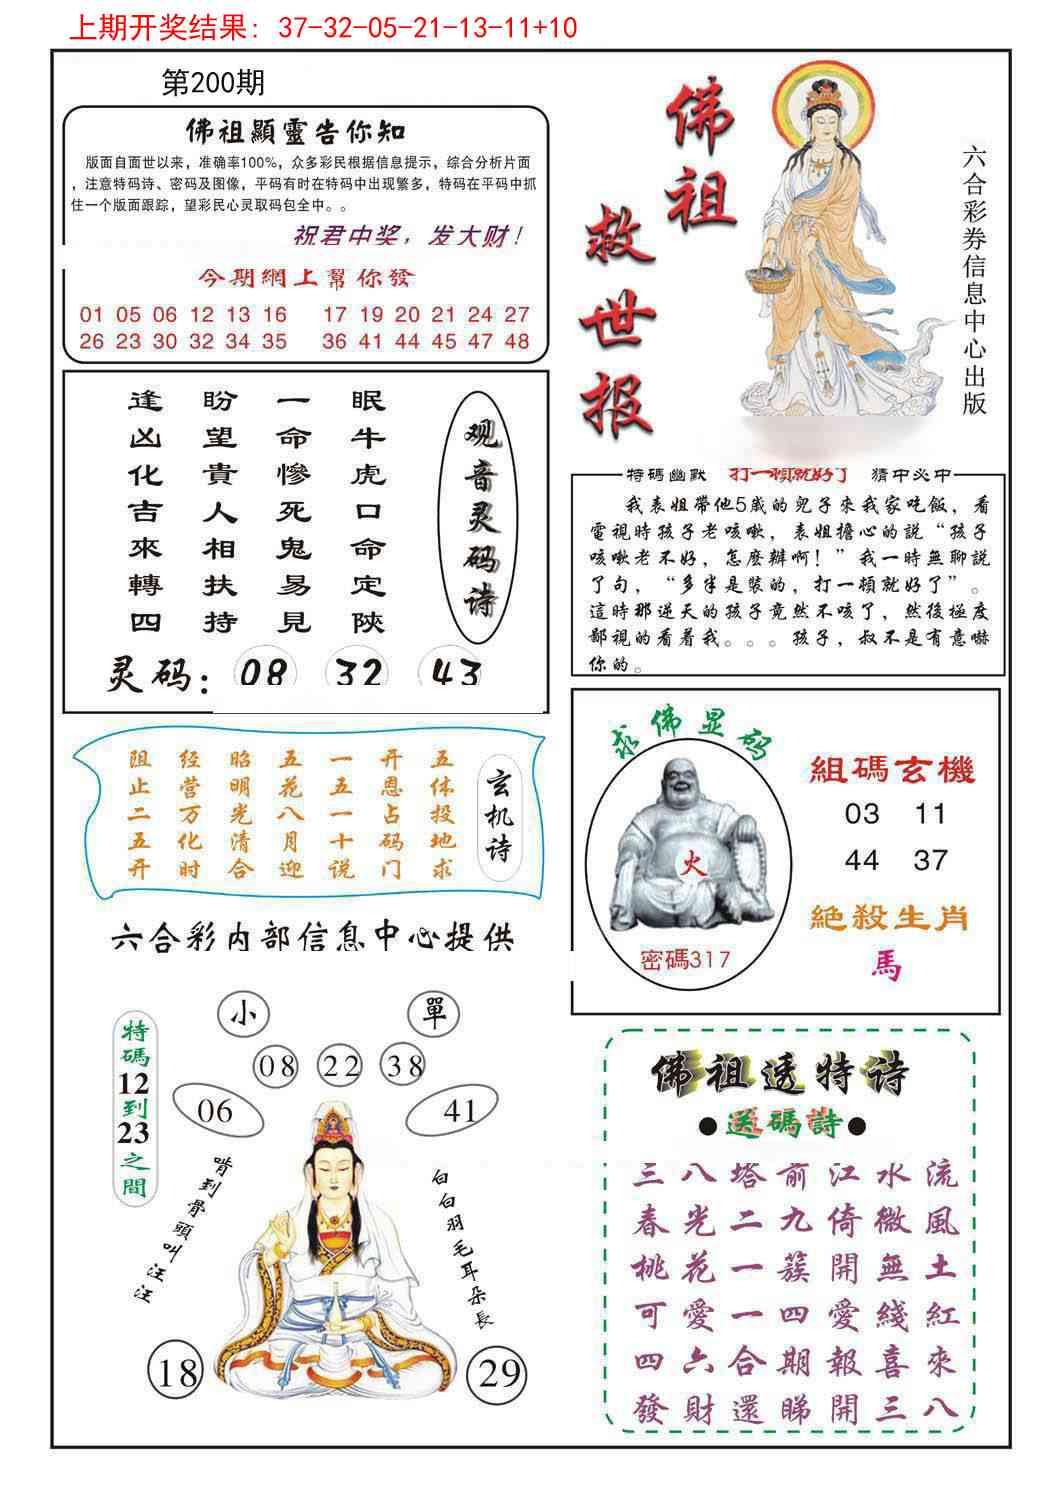 上期开奖结果: 37-32-05-21-13-11+10
第200期
佛祖顯靈告你知
版面自面世以来，准确率100%，众多彩民根据信息提示，综合分析片面
，注意特码诗、密码及图像，平码有时在特码中出现繁多，特码在平码中抓
住一个版面跟踪，望彩民心灵取码包全中。。
祝君中奖，发大财！
今期網上幫你發
01 05 06 12 13 16 17 19 20 21 24 27
26 23 30 32 34 35 36 41 44 45 47 48
佛祖
救世报
六合彩券信息中心出版
逢盼一眠
凶望命牛
化貴慘虎
吉人死口
來相鬼命
轉扶易定
四持見陝
观音灵码诗
灵码: 08 32 43
特碼幽默 打一頓就好了 猜中必中
我表姐帶他5歲的兒子來我家吃飯，看
電視時孩子老咳嗽，表姐擔心的説“孩子
咳嗽老不好，怎麽辦啊！”我一時無聊説
了句，“多半是裝的，打一頓就好了”。
這時那逆天的孩子竟然不咳了，然後極度
鄙視的看着我。。。孩子，叔不是有意嚇
你的。
阻经昭五一开五
止营明花五恩体
二万光八一占投
五化清月十码地
开时合迎说门求
玄机诗
求佛显码
火
密碼317
組碼玄機
03 11
44 37
絕殺生肖
馬
六合彩内部信息中心提供
小 單
08 22 38
06 41
特碼12到23之間
啃到骨頭叫汪汪
白白羽毛耳朵長
18 29
佛祖透特诗
●送碼詩●
三八塔前江水流
春光二九倚微風
桃花一簇開無土
可愛一四愛綫紅
四六合期報喜來
發財還睇開三八